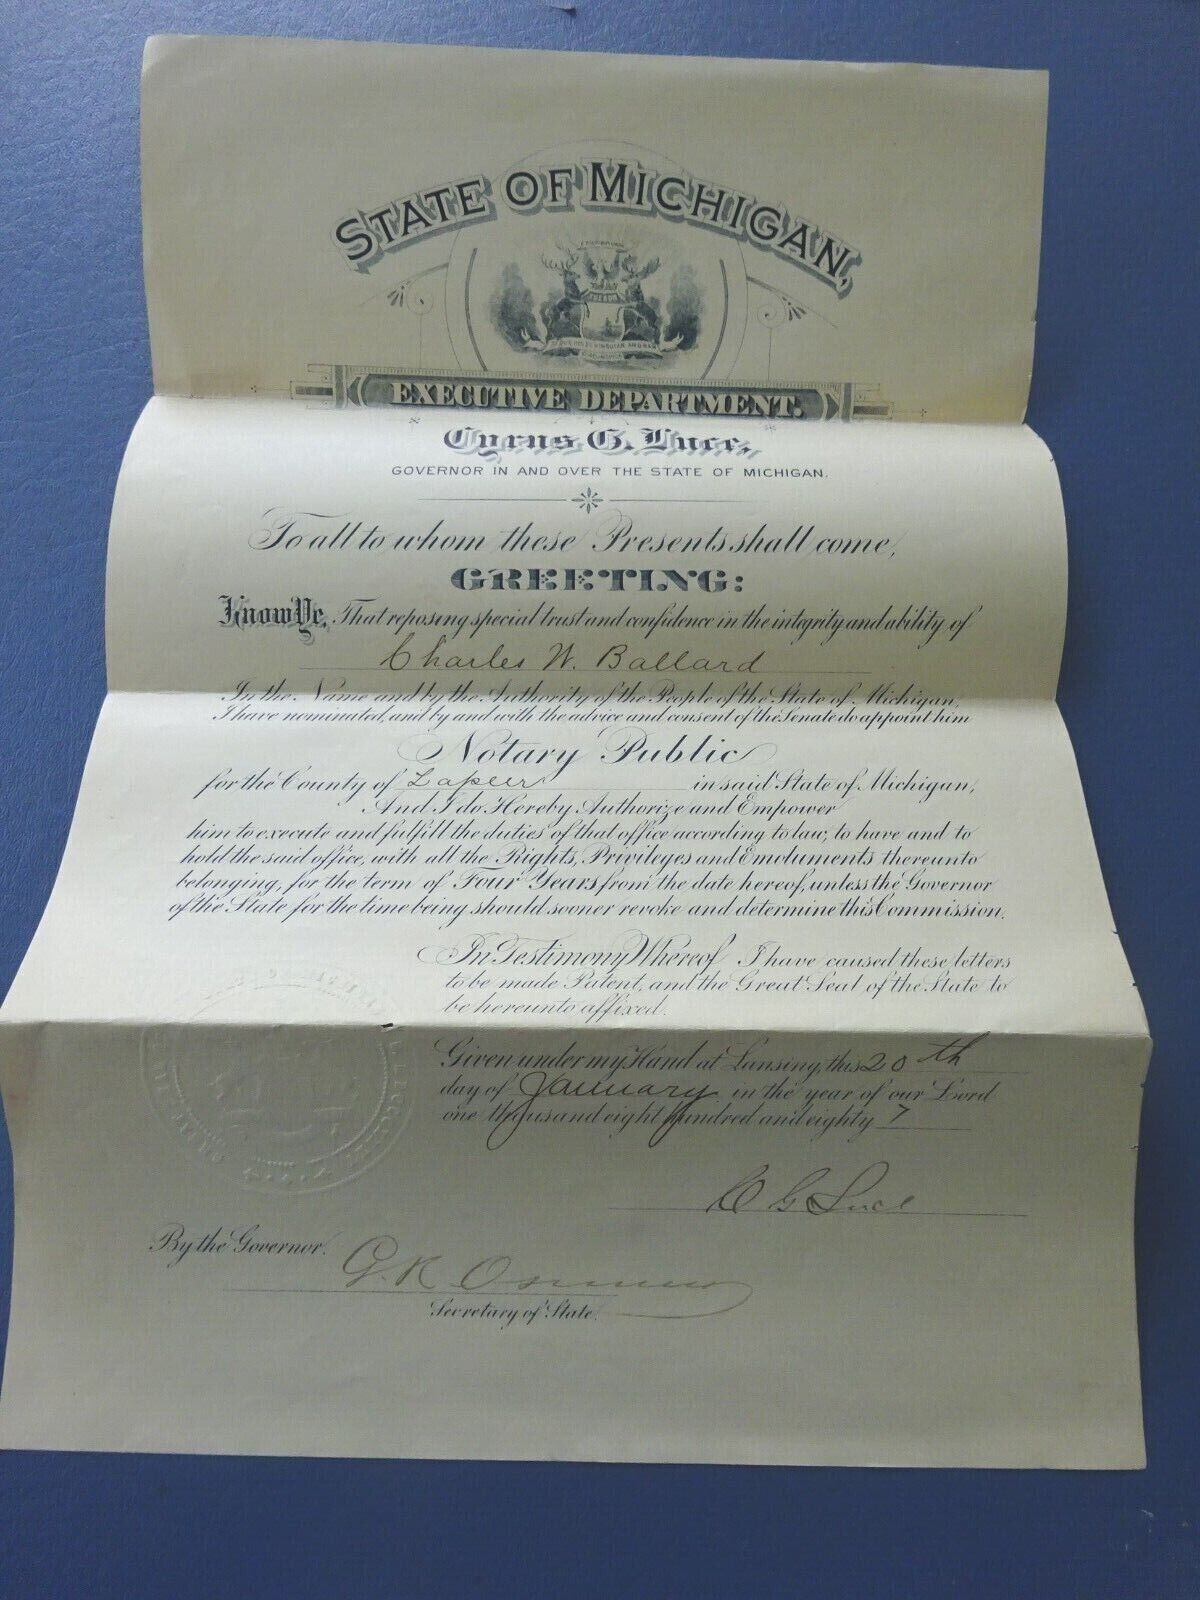 STATE OF MICHIGAN,
TUEBOR
EXECUTIVE DEPARTMENT.
Cyrus G. Luce,
GOVERNOR IN AND OVER THE STATE OF MICHIGAN.
To all to whom these Presents shall come,
GREETING:
Know Ye, That reposing special trust and confidence in the integrity and ability of
Charles W. Ballard
In the Name and by the Authority of the People of the State of Michigan,
I have nominated, and by and with the advice and consent of the Senate do appoint him
Notary Public
for the County of Lapeer in said State of Michigan,
And I do Hereby Authorize and Empower
him to execute and fulfill the duties of that office according to law; to have and to
hold the said office, with all the Rights, Privileges and Emoluments thereunto
belonging, for the term of Four Years from the date hereof, unless the Governor
of the State for the time being should sooner revoke and determine this Commission.
In Testimony Whereof, I have caused these letters
to be made Patent, and the Great Seal of the State to
be hereunto affixed.
Given under my Hand at Lansing, this 20th
day of January in the year of our Lord
one thousand eight hundred and eighty 7
C G Luce
By the Governor.
G. R. Osmun
Secretary of State.